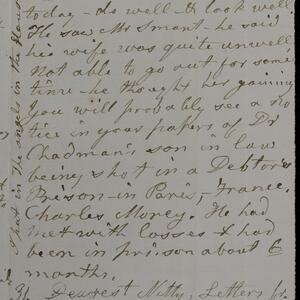 today - do well - & look well.
He saw Mr Smant - he said
his wife was quite unwell
Not able to go out for some
time - he thought her gaining
You will probably see a no
tice in your papers of Dr
Chadman's son in law
being shot in a Debtor's
Prison - in Paris, - France,
Charles Morey. He had
met with losses & had
been in prison about 6
months.
Dearest Nitty, Letters fr
in the angels in the Hous